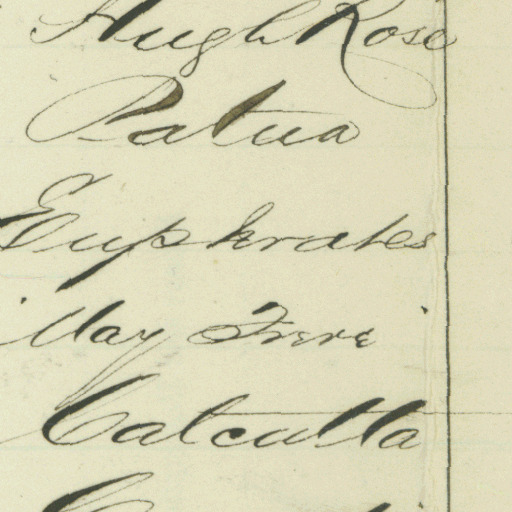 Hugh Rose
Patna
Euphrates
May Frere
Calcutta